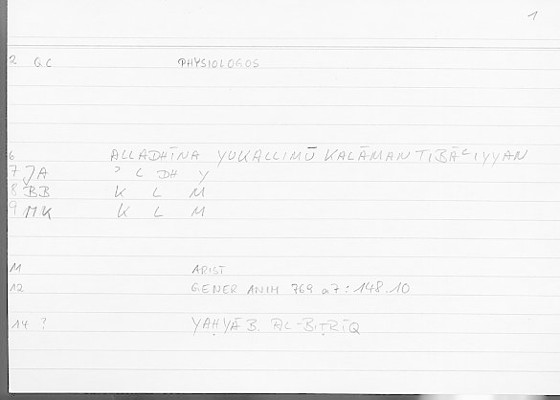 1
2 GC PHYSIOLOGOS
6 ALLADHĪNA YUKALLIMŪ KALĀMAN TIBĀʿIYYAN
7 JA ʾ L DH Y
8 BB K L M
9 MK K L M
11 ARIST
12 GENER ANIM 769 a7 : 148.10
14 ? YAḤYĀ B. AL-BIṬRĪQ